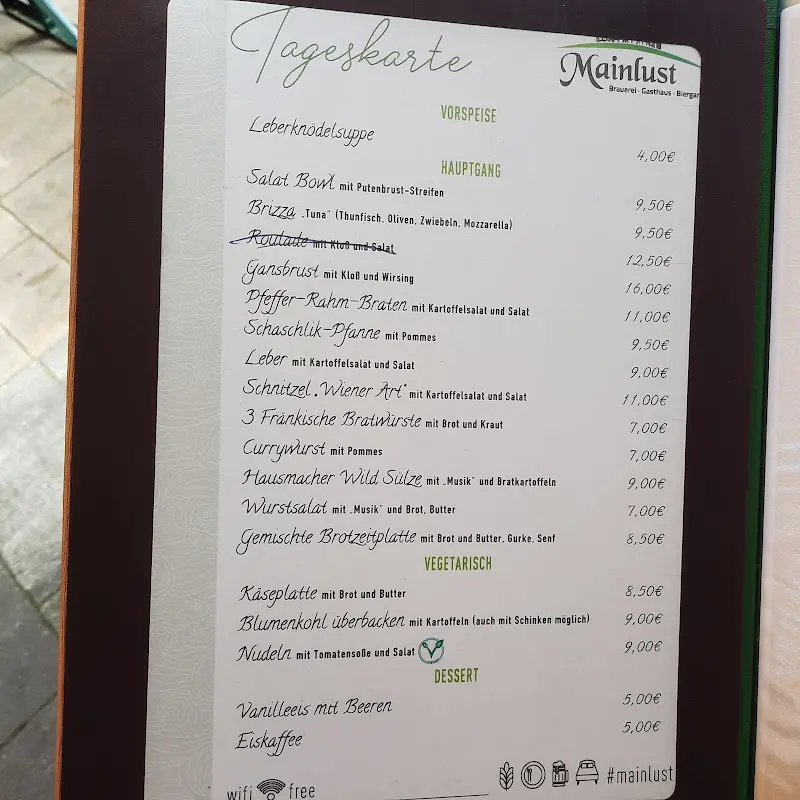 Tageskarte
Mainlust
Brauerei · Gasthaus · Biergar
VORSPEISE
Leberknödelsuppe 4,00€
HAUPTGANG
Salat Bowl mit Putenbrust-Streifen 9,50€
Brizza „Tuna" (Thunfisch, Oliven, Zwiebeln, Mozzarella) 9,50€
Roulade mit Kloß und Salat 12,50€
Gansbrust mit Kloß und Wirsing 16,00€
Pfeffer-Rahm-Braten mit Kartoffelsalat und Salat 11,00€
Schaschlik-Pfanne mit Pommes 9,50€
Leber mit Kartoffelsalat und Salat 9,00€
Schnitzel „Wiener Art" mit Kartoffelsalat und Salat 11,00€
3 Fränkische Bratwürste mit Brot und Kraut 7,00€
Currywurst mit Pommes 7,00€
Hausmacher Wild Sülze mit „Musik" und Bratkartoffeln 9,00€
Wurstsalat mit „Musik" und Brot, Butter 7,00€
Gemischte Brotzeitplatte mit Brot und Butter, Gurke, Senf 8,50€
VEGETARISCH
Käseplatte mit Brot und Butter 8,50€
Blumenkohl überbacken mit Kartoffeln (auch mit Schinken möglich) 9,00€
Nudeln mit Tomatensoße und Salat 9,00€
DESSERT
Vanilleeis mit Beeren 5,00€
Eiskaffee 5,00€
wifi free
#mainlust